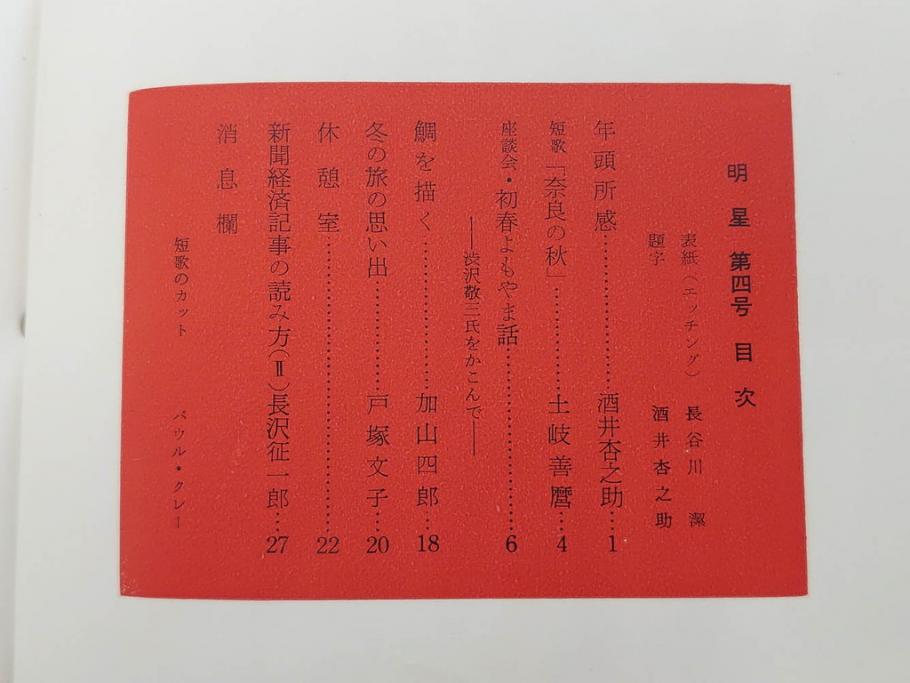 明星 第四号 目次
表紙（エッチング） 長谷川 潔
題字 酒井杏之助
年頭所感……酒井杏之助…1
短歌「奈良の秋」……土岐善麿…4
座談会・初春よもやま話……6
――渋沢敬三氏をかこんで――
鯛を描く……加山四郎…18
冬の旅の思い出……戸塚文子…20
休憩室……22
新聞経済記事の読み方（Ⅱ）長沢征一郎…27
消息欄
短歌のカット パウル・クレー